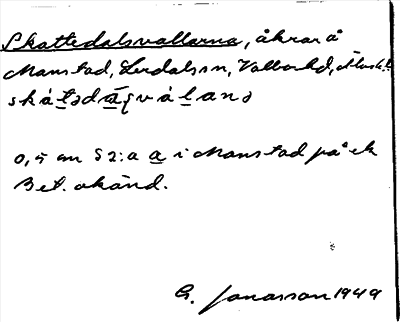 Skattedalsvallarna, åkrar å
Manstad, Lerdals sn, Valbo hd,
skát̲ədā̲ɋvàl̲anə
0,5 cm S 2:a a̲ i Manstad på ek
Bet. okänd.
G. Jonasson 1949